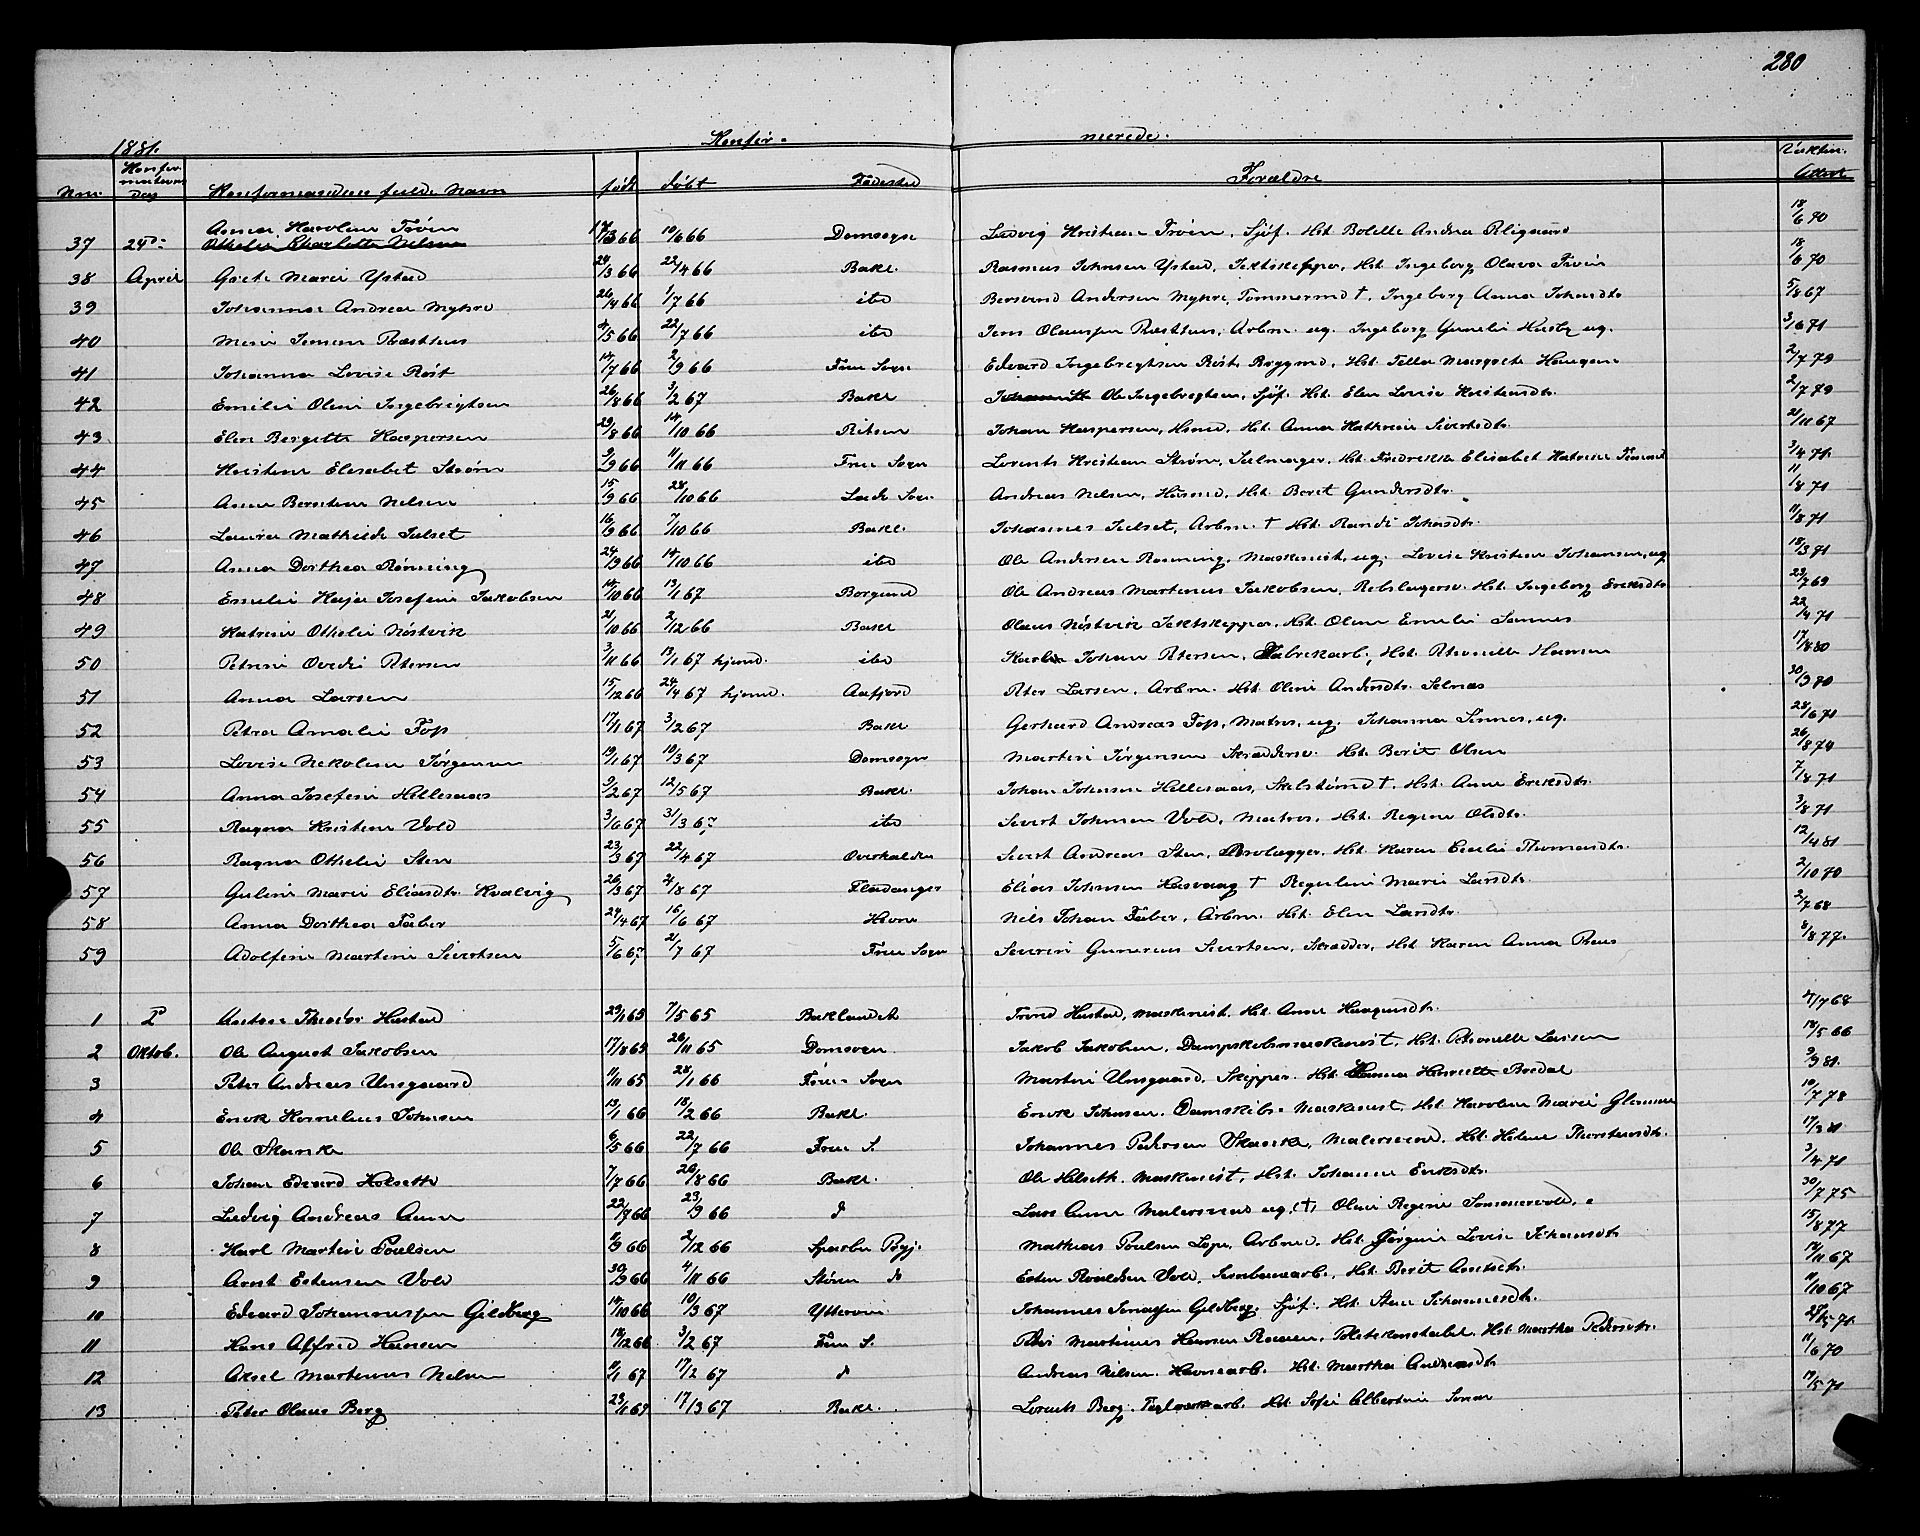 280
1881. Konfir- merede.
Nro. Konfirmations Dag Konfirmandens fulde Navn født døbt Fødested Forældre Vaktin. Attest
37 24de Anna Karoline Trøen 17/3 66 10/6 66 Domsogn Ludvig Kristian Trøen, Sjøf. Hst. Bolette Andrea 18/6 70
Othelie Charlotte Nilsen
38 April Grete Marie Ystad 24/3 66 22/4 66 Bakl. Rasmus Johnsen Ystad, Jektskipper, Hst. Ingeborg Olava Trøen 18/6 70
39 Johanna Andrea Myhre 26/4 66 1/7 66 ibd Bersvend Andersen Myhre, Tømmermd †, Ingeborg Anna Johnsdtr. 5/8 67
40 4/5 66 22/7 66 ibd Jens Olaussen Arbm. ug. Ingeborg Gunelie Husby ug. 3/6 71
41 Johanna Lovise Røst 14/7 66 2/9 66 Frue Sogn Edvard Ingebrigtsen Røst, Brygmd, Hst. Margrete Haugan 2/7 79
42 Emilie Oline Ingebrigtsen 26/8 66 3/2 67 Bakl Ole Ingebrigtsen, Sjøf. Hst. Elen Lovise Kristiansdtr. 2/7 79
43 Elen Bergitte Kaspersen 29/8 66 14/10 66 Ritsen Johan Kaspersen, Hsmd, Hst. Anna Kathrine Sivertsdtr. 2/11 67
44 Kristine Elisabet Strøm 9/9 66 11/11 66 Frue Sogn Lorents Kristian Strøm, Seilmager, Hst. Fredrikke Elisabet Katrine 3/4 71
45 Anna Berntine Nilsen 15/9 66 28/10 66 Lade Sogn Andreas Nilsen, Husmd, Hst. Beret Gundersdtr. 11/8 71
46 Laura Mathilde Julset 16/9 66 7/10 66 Bakl. Johannes Julset, Arbm. † Hst. Randi Johnsdtr. 11/8 71
47 Anna Dorthea Rønning 24/9 66 14/10 66 ibd Ole Andersen Rønning, Maskinist, ug. Lovise Kristine Johansen, ug 18/3 71
48 Emilie Kaja Josefine Jakobsen 14/10 66 13/1 67 Borgund Ole Andreas Martinus Jakobsen, Rebslagersv. Hst. Ingeborg Eriksdtr 23/7 69
49 Katrine Othelie Nøstvik 21/10 66 2/12 66 Bakl Olaus Nøstvik Jektskipper, Hst. Oline Emelie Sannes 22/4 71
50 Petrine Ovedie Petersen 3/11 66 13/1 67 hjemd. ibd Karl Johan Petersen, Fabrikarb., Hst. Petronelle Hansen 17/8 80
51 Anna Larsen 15/12 66 24/4 67 hjemd. Aafjord Peter Larsen, Arbm. Hst. Oline Andersdtr. Selnæs 30/9 70
52 Petra Amalie Foss 17/1 67 3/2 67 Bakl Gerhard Andreas Foss, Matros, ug. Johanna Sinnes, ug. 28/6 71
53 Lovise Nikoline Jørgensen 19/1 67 10/3 67 Domsogn Martin Jørgensen Skræddersv. Hst. Berit Olsen 26/8 74
54 Anna Josefine Hellesaas 9/2 67 12/5 67 Bakl. Johan Johnsen Hellesaas, †, Hst. Anne Eriksdtr. 7/8 71
55 Ragna Kristine Vold 3/6 67 31/3 67 ibd Sivert Johnsen Vold, Matros, Hst. Regine Olsdtr. 3/8 71
56 Ragna Othelie Sten 23/3 67 22/4 67 Overhalden Sivert Andreas Sten, Brolægger, Hst. Karen Cecilie Thomasdtr. 12/4 81
57 Guline Marie Eliasdtr. Kvalvig 26/3 67 4/8 67 Fladanger Elias Johnsen Hasvaag † Reguline Marie Larsdtr. 2/10 70
58 Anna Dorthea Faber 24/4 67 16/6 67 Hevne Nils Johan Faber, Arbm. Hst. Elen Larsdtr. 2/7 68
59 Adolfine Martine Sivertsen 5/6 67 21/7 67 Frue Sogn Severin Gunerius Sivertsen, Skrædder, Hst. Karen Anna 8/8 77.
1 2den Anton Theodor Hustad 29/1 65 7/5 65 Baklandet Trond Hustad, Maskinist, Hst. Anne Haagensdtr. 4/7 68
2 Oktob. Ole August Jakobsen 17/8 65 26/11 65 Jakob Jakobsen, Dampskibsmaskinist, Hst. Petronelle Larsen 18/5 66
3 Peter Andreas Unsgaard 11/11 65 28/1 66 Frue Sogn Martin Unsgaard, Skipper. Hst. Hanna Henriette Bredal 9/9 81.
4 Enok Kornelius Johnsen 13/1 66 18/2 66 Bakl. Enok Johnsen, Damskibs-Maskinist, Hst. Karoline Marie 10/7 78
5 Ole Skanke 6/5 66 22/7 66 Frue S. Johannes Pedersen Skanke, Malersvend, Hst. Heline Thorstensdtr. 17/3 81
6 Johan Edvard Holseth 7/7 66 26/8 66 Bakl. Ole Hilseth, Maskinist, Hst. Johanne Eriksdtr. 3/4 71
7 Ludvig Andreas Aune 22/7 66 23/9 66 d Lars Aune Malersvend ug. (†) Oline Regine Sommervold 30/7 75
8 Karl Martin Poulsen 9/9 66 2/12 66 Sparbu Pgj. Mathias Poulsen Arbmd. Hst. Jørgine Lovise Johansdtr. 15/8 77
9 Arnt Estensen Vold 30/9 66 4/11 66 Støren d Esten Roaldsen Vold, Jernbanearb. Hst. Berit Arntsdtr. 14/11 67
10 Edvard Johannessen Gildberg 14/10 66 10/3 67 Ytterøen Johannes Jonassen Gildberg, Sjøf. Hst. Stine Johannesdtr. 11/10 67
11 Hans Alfred Hansen 18/12 66 3/2 67 Frue S. Peter Martinus Hansen Politikonstabel. Hst. Martha Pedersdtr. 28/5 71.
12 Aksel Martinus Nilsen 11/1 67 17/2 67 d Andreas Nilsen, Havnearb. Hst. Martha Andreasdtr 11/6 70
13 Peter Olaus Berg 23/1 67 17/3 67 Bakl. Lorents Berg, Teglverkarb. Hst. Sofie Albertine 19/5 71